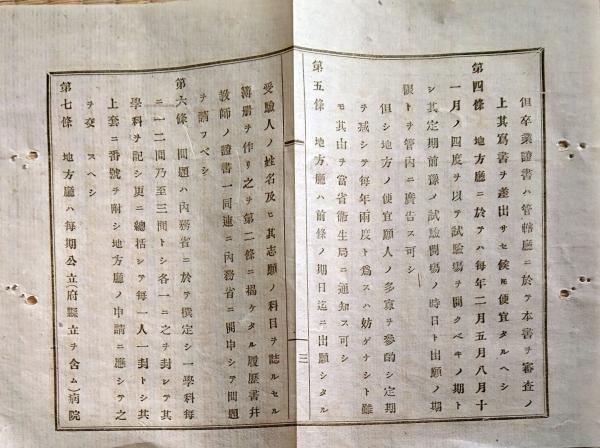 但卒業證書ハ管轄廳ニ於テ本書ヲ審查ノ
上其寫書ヲ差出サセ候𪜈便宜タルヘシ
第四條　地方廳ニ於テハ每年二月五月八月十
一月ノ四度ヲ以テ試驗塲ヲ開クベキノ期ト
シ其定期前豫メ試驗開塲ノ時日ト出願ノ期
限トヲ管內ニ廣告ス可シ
但シ地方ノ便宜願人ノ多寡ヲ參酌シ定期
ヲ减シテ每年兩度ト爲スハ妨ゲナシト雖
モ其由ヲ當省衞生局ニ通知ス可シ
第五條　地方廳ハ前條ノ期日迄ニ出願シタル
三
受驗人ノ姓名及ヒ其志願ノ科目ヲ誌ルセル
簿册ヲ作リ之ヲ第二條ニ揭ケタル履歷書幷
敎師ノ證書一同速ニ內務省ニ開申シテ問題
ヲ請フベシ
第六條　問題ハ內務省ニ於テ撰定シ一學科每
ニ一二問乃至三問トシ各一ニ之ヲ封シテ其
學科ヲ記シ更ニ總括シテ每一人一封トシ其
上套ニ番號ヲ附シ地方廳ノ申請ニ應シテ之
ヲ交スヘシ
第七條　地方廳ハ每期公立(府縣立ヲ含ム)病院